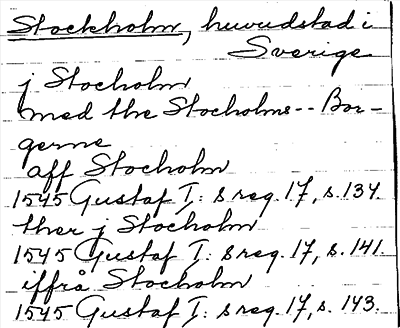 Stockholm, huvudstad i
Sverige
j Stocholm
med the Stocholms-- Bor-
gerne
aff Stocholm
1545 Gustaf I: s reg. 17, s. 134.
ther j Stocholm
1545 Gustaf I: s reg. 17, s. 141.
iffrå Stocholm
1545 Gustaf I: s reg. 17, s. 143.